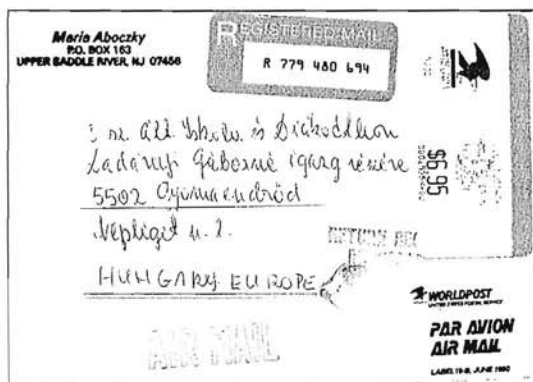 Maria Aboczky
P.O. BOX 163
UPPER SADDLE RIVER, NJ 07458
REGISTERED MAIL
R 779 480 694
$6.95
I sz. Ált. Iskola és Diákotthon
Ladányi Gáborné igazg részére
5502 Gyomaendrőd
Népliget u. 2.
RETURN REC
HUNGARY EUROPE
AIR MAIL
WORLDPOST
UNITED STATES POSTAL SERVICE
PAR AVION
AIR MAIL
LABEL 19-B, JUNE 1990